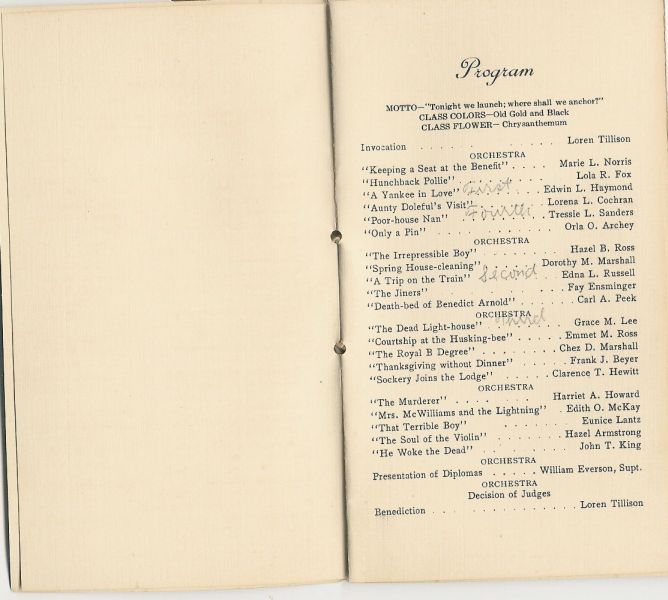 Program
MOTTO—"Tonight we launch; where shall we anchor?"
CLASS COLORS—Old Gold and Black
CLASS FLOWER—Chrysanthemum
Invocation . . . . . . . . . . . . Loren Tillison
ORCHESTRA
"Keeping a Seat at the Benefit" . . . . Marie L. Norris
"Hunchback Pollie" . . . . . . . . . . Lola R. Fox
"A Yankee in Love" First . . Edwin L. Haymond
"Aunty Doleful's Visit" . . . . . Lorena L. Cochran
"Poor-house Nan" Fourth . . Tressie L. Sanders
"Only a Pin" . . . . . . . . . . . . Orla O. Archey
ORCHESTRA
"The Irrepressible Boy" . . . . . . . Hazel B. Ross
"Spring House-cleaning" . . . . . Dorothy M. Marshall
"A Trip on the Train" Second . . Edna L. Russell
"The Jiners" . . . . . . . . . . Fay Ensminger
"Death-bed of Benedict Arnold" . . . . . Carl A. Peek
ORCHESTRA
"The Dead Light-house" Third . . Grace M. Lee
"Courtship at the Husking-bee" . . . . Emmet M. Ross
"The Royal B Degree" . . . . . . . Chez D. Marshall
"Thanksgiving without Dinner" . . . . Frank J. Beyer
"Sockery Joins the Lodge" . . . . Clarence T. Hewitt
ORCHESTRA
"The Murderer" . . . . . . . . Harriet A. Howard
"Mrs. McWilliams and the Lightning" . Edith O. McKay
"That Terrible Boy" . . . . . . . . Eunice Lantz
"The Soul of the Violin" . . . . . . Hazel Armstrong
"He Woke the Dead" . . . . . . . . John T. King
ORCHESTRA
Presentation of Diplomas . . . . . William Everson, Supt.
ORCHESTRA
Decision of Judges
Benediction . . . . . . . . . . . . . Loren Tillison